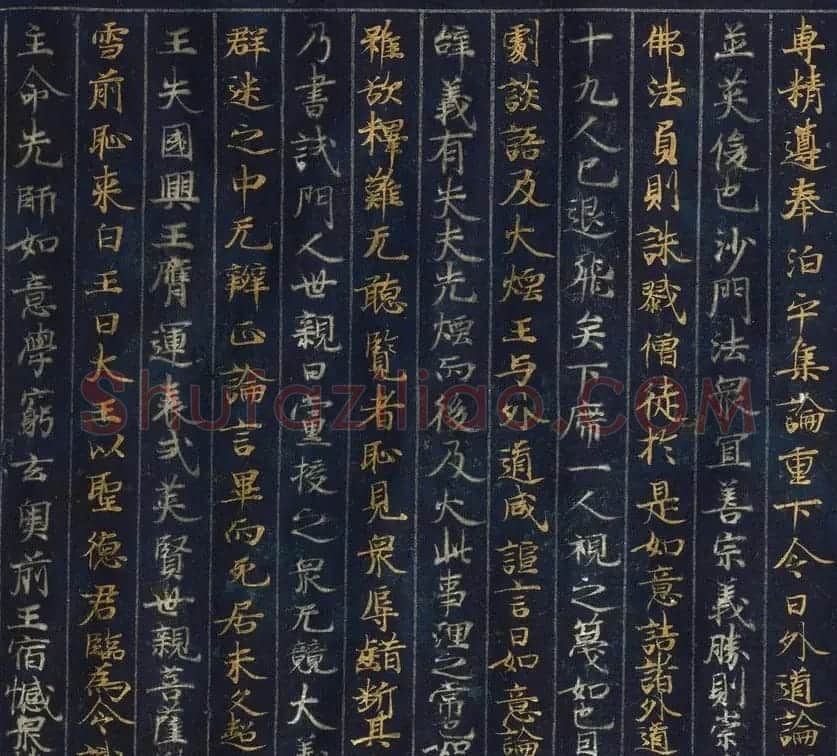 專精遵奉洎乎集論重下令曰外道論
並英俊也沙門法衆冝善宗義勝則崇
佛法負則誅戮僧徒於是如意詰諸外道
十九人已退飛矣下席一人視之蔑如也因
劇談語及火煙王与外道咸諠言曰如意論
辞義有失夫先煙而後及火此事理之常也
雖欲釋難无聽覧者恥見衆辱齰断其
乃書誡門人世親曰黨援之衆无競大義
群迷之中无辯正論言畢而死居未久超
王失國興王膺運表式英賢世親菩薩
雪前恥来白王曰大王以聖德君臨爲令
主命先師如意學窮玄奥前王宿憾衆
Shufaziliao.COM